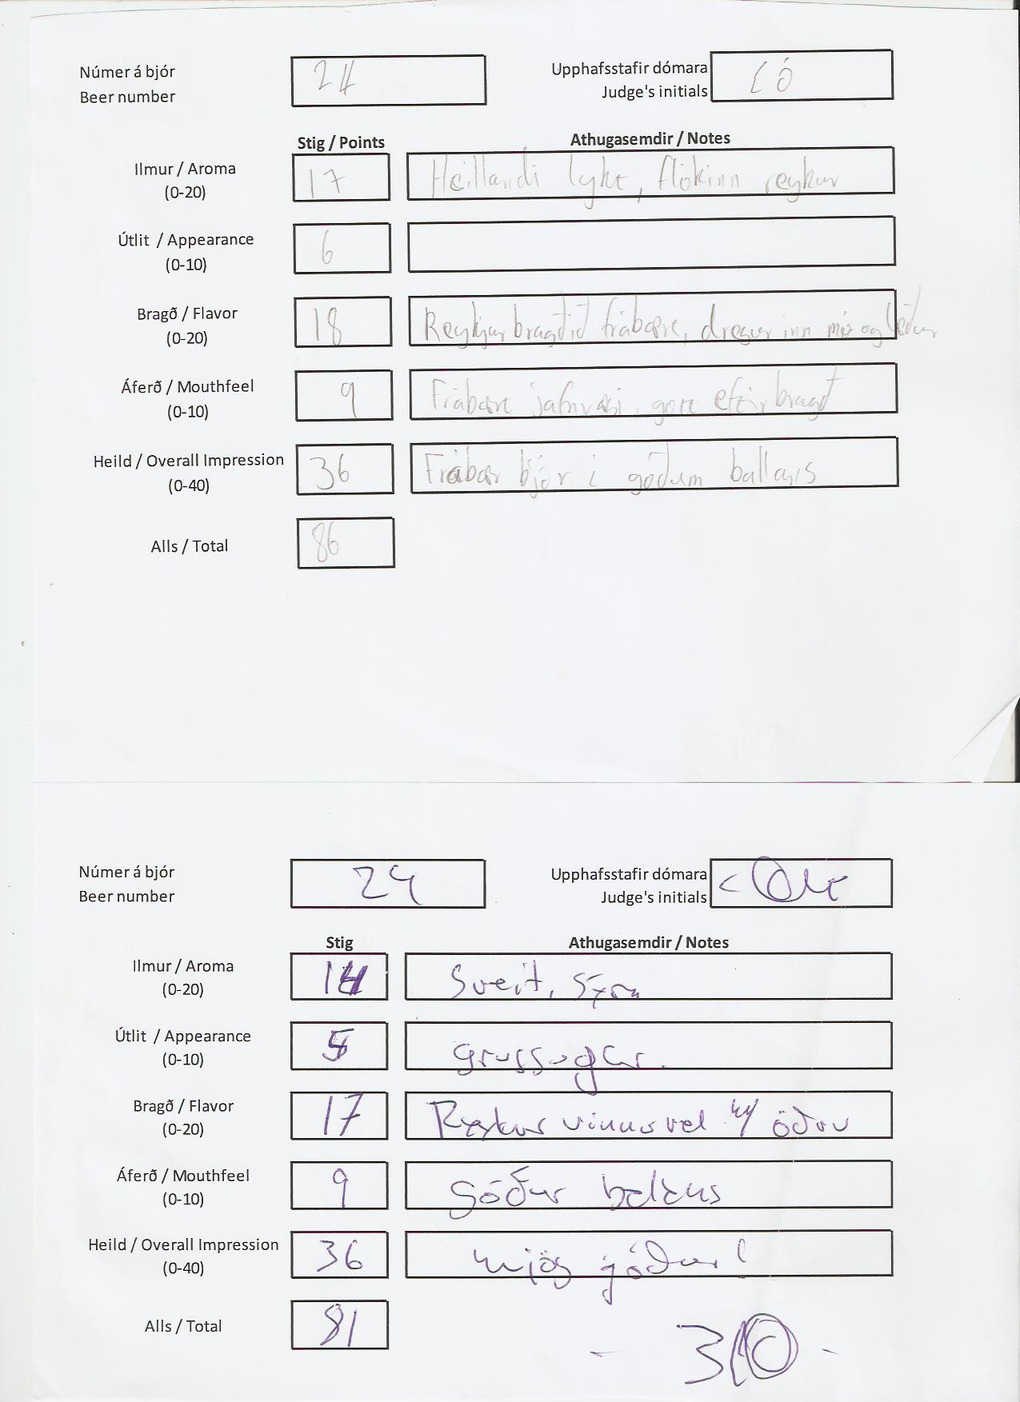 Númer á bjór
Beer number
24
Upphafsstafir dómara
Judge's initials
LÓ
Stig / Points
Athugasemdir / Notes
Ilmur / Aroma
(0-20)
17
Heillandi lykt, flókinn reykur
Útlit / Appearance
(0-10)
6
Bragð / Flavor
(0-20)
18
Reykjarbragðið frábært, dregur inn mið og
Áferð / Mouthfeel
(0-10)
9
Frábært jafnvægi, gott eftirbragð
Heild / Overall Impression
(0-40)
36
Frábær bjór í góðum ballans
Alls / Total
86
Númer á bjór
Beer number
24
Upphafsstafir dómara
Judge's initials
Stig
Athugasemdir / Notes
Ilmur / Aroma
(0-20)
14
Sveit, sýra
Útlit / Appearance
(0-10)
5
gruggugur.
Bragð / Flavor
(0-20)
17
Reykur vinnur vel m/ öðru
Áferð / Mouthfeel
(0-10)
9
Góður balans
Heild / Overall Impression
(0-40)
36
mjög góður!
Alls / Total
81
- 310 -